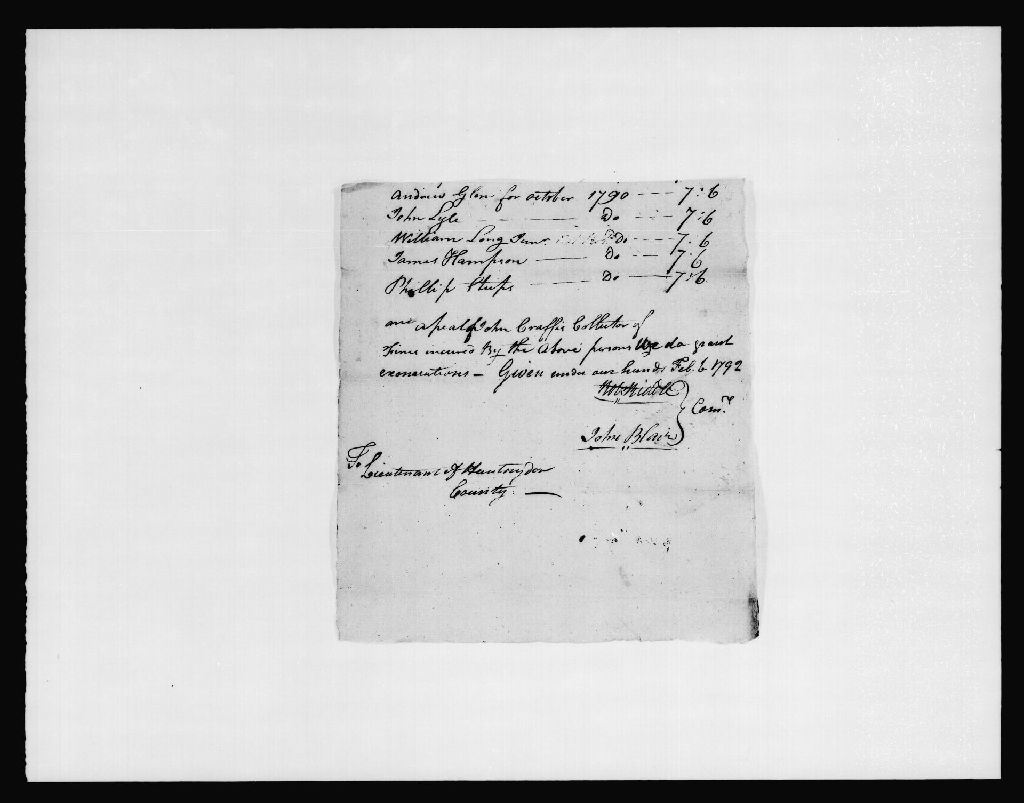 Andrew Glen for october 1790 --- 7:6
John Lyle --- Do --- 7:6
William Long Junr Do --- 7:6
James Hampson --- Do --- 7:6
Phillip Stups --- Do --- 7:6
one apeal of John Craffis Collector of
Fines incured By the Above persons We do grant
exonerations — Given under our hands Feb. 6 1792
John Blair } Comrs
To Lieutenant of Huntingdon
County. —